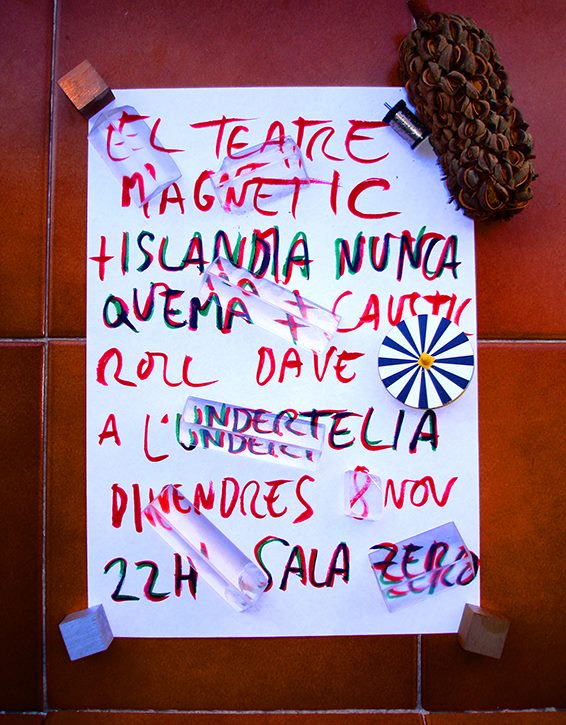 EL TEATRE
MAGNETIC
+ ISLANDIA NUNCA
QUEMA + CAUSTIC
ROLL DAVE
A L'UNDERTELIA
DIVENDRES 8 NOV
22H SALA ZERO